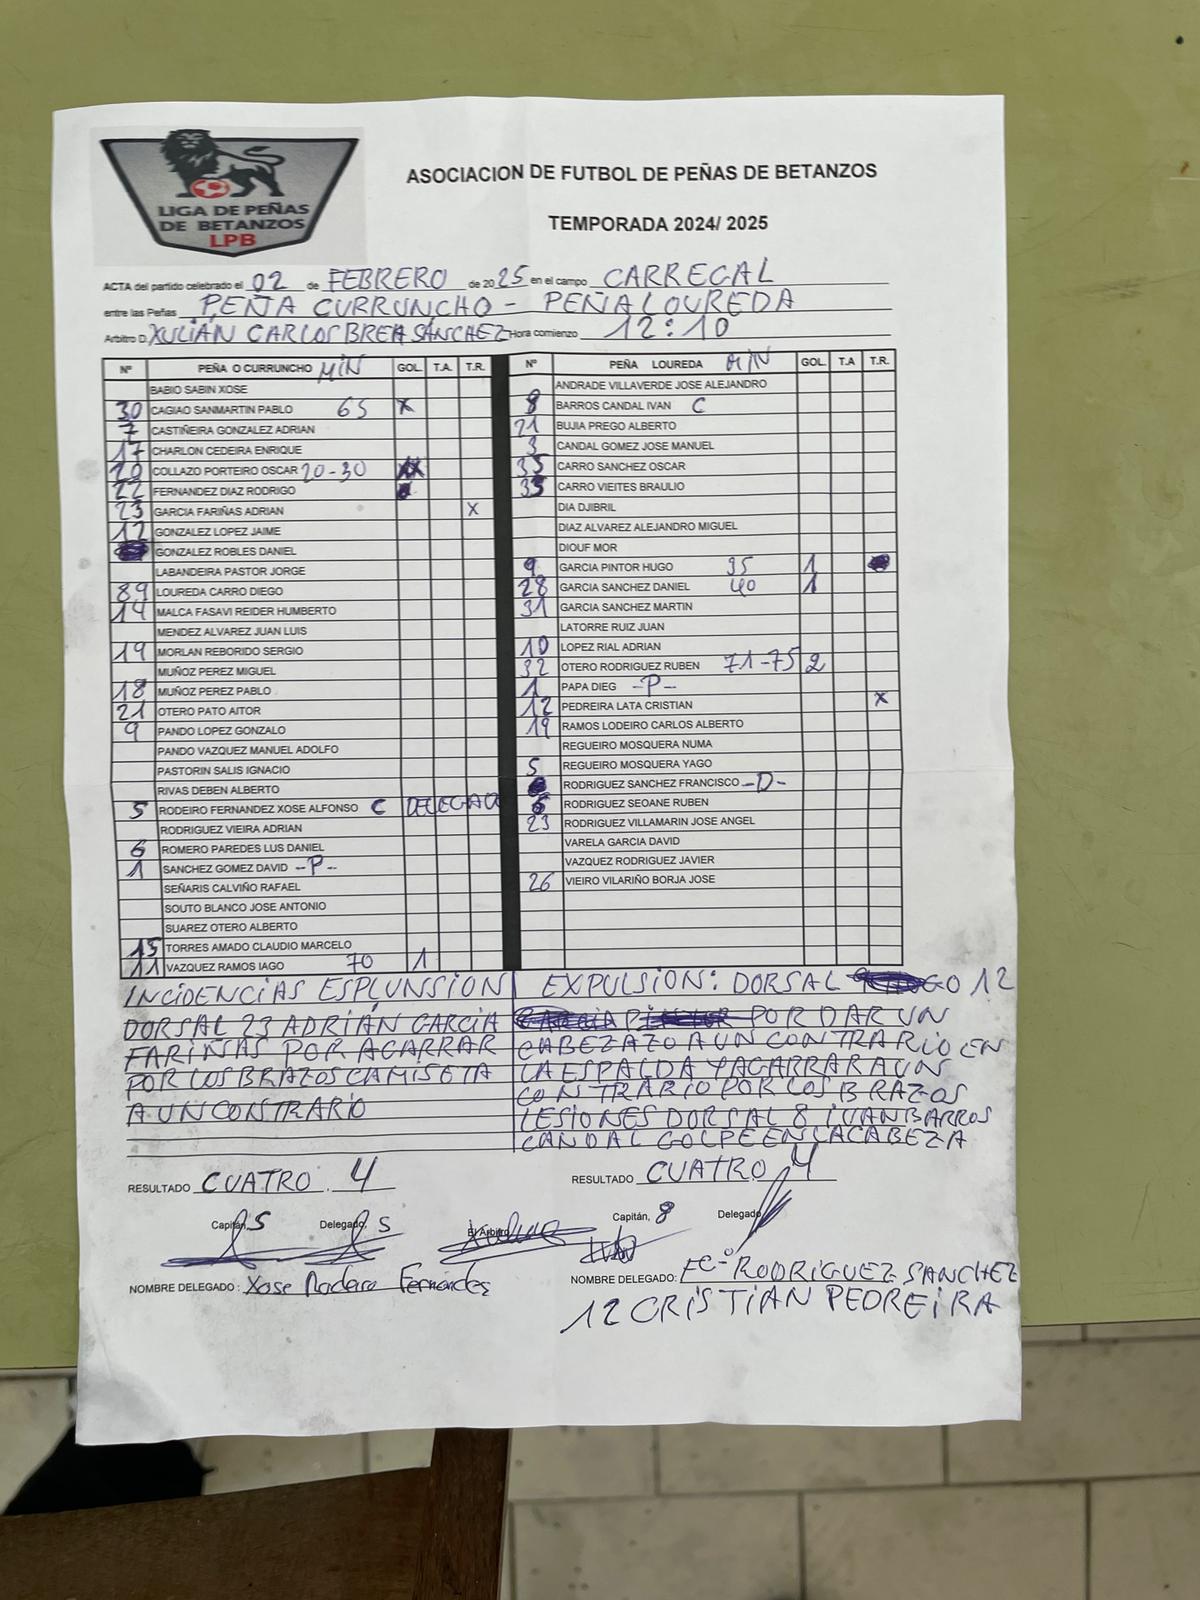 LIGA DE PEÑAS
DE BETANZOS
LPB
ASOCIACION DE FUTBOL DE PEÑAS DE BETANZOS
TEMPORADA 2024/ 2025
ACTA del partido celebrado el 02 de FEBRERO de 2025 en el campo CARREGAL
entre las Peñas PEÑA CURRUNCHO - PEÑA LOUREDA
Arbitro D. XULIÁN CARLOS BREA SÁNCHEZ Hora comienzo 12:10
Nº PEÑA O CURRUNCHO MIN GOL. T.A. T.R.
BABIO SABIN XOSE
30 CAGIAO SANMARTIN PABLO 65 X
7 CASTIÑEIRA GONZALEZ ADRIAN
17 CHARLON CEDEIRA ENRIQUE
20 COLLAZO PORTEIRO OSCAR 20-30 XX
22 FERNANDEZ DIAZ RODRIGO
23 GARCIA FARIÑAS ADRIAN X
12 GONZALEZ LOPEZ JAIME
GONZALEZ ROBLES DANIEL
LABANDEIRA PASTOR JORGE
89 LOUREDA CARRO DIEGO
14 MALCA FASAVI REIDER HUMBERTO
MENDEZ ALVAREZ JUAN LUIS
19 MORLAN REBORIDO SERGIO
MUÑOZ PEREZ MIGUEL
18 MUÑOZ PEREZ PABLO
21 OTERO PATO AITOR
9 PANDO LOPEZ GONZALO
PANDO VAZQUEZ MANUEL ADOLFO
PASTORIN SALIS IGNACIO
RIVAS DEBEN ALBERTO
5 RODEIRO FERNANDEZ XOSE ALFONSO C DELEGADO
RODRIGUEZ VIEIRA ADRIAN
6 ROMERO PAREDES LUS DANIEL
1 SANCHEZ GOMEZ DAVID -P-
SEÑARIS CALVIÑO RAFAEL
SOUTO BLANCO JOSE ANTONIO
SUAREZ OTERO ALBERTO
15 TORRES AMADO CLAUDIO MARCELO
11 VAZQUEZ RAMOS IAGO 70 1
Nº PEÑA LOUREDA MIN GOL. T.A T.R.
ANDRADE VILLAVERDE JOSE ALEJANDRO
8 BARROS CANDAL IVAN C
21 BUJIA PREGO ALBERTO
3 CANDAL GOMEZ JOSE MANUEL
35 CARRO SANCHEZ OSCAR
33 CARRO VIEITES BRAULIO
DIA DJIBRIL
DIAZ ALVAREZ ALEJANDRO MIGUEL
DIOUF MOR
9 GARCIA PINTOR HUGO 35 1
28 GARCIA SANCHEZ DANIEL 40 1
31 GARCIA SANCHEZ MARTIN
LATORRE RUIZ JUAN
10 LOPEZ RIAL ADRIAN
32 OTERO RODRIGUEZ RUBEN 71-75 2
1 PAPA DIEG -P-
12 PEDREIRA LATA CRISTIAN X
19 RAMOS LODEIRO CARLOS ALBERTO
REGUEIRO MOSQUERA NUMA
5 REGUEIRO MOSQUERA YAGO
RODRIGUEZ SANCHEZ FRANCISCO -D-
6 RODRIGUEZ SEOANE RUBEN
23 RODRIGUEZ VILLAMARIN JOSE ANGEL
VARELA GARCIA DAVID
VAZQUEZ RODRIGUEZ JAVIER
26 VIEIRO VILARIÑO BORJA JOSE
INCIDENCIAS ESPLUNSSION
DORSAL 23 ADRIÁN GARCIA
FARIÑAS POR AGARRAR
POR LOS BRAZOS CAMISETA
A UN CONTRARIO
EXPULSION: DORSAL GO 12
POR DAR UN
CABEZAZO A UN CONTRARIO EN
LA ESPALDA Y AGARRAR A UN
CONTRARIO POR LOS BRAZOS
LESIONES DORSAL 8 IVAN BARROS
CANDAL GOLPE EN LA CABEZA
RESULTADO CUATRO 4
RESULTADO CUATRO 4
Capitán, 5 Delegado, 5 El Arbitro Capitán, 8 Delegado
NOMBRE DELEGADO: Xose Rodeiro Fernández
NOMBRE DELEGADO: FCº RODRIGUEZ SANCHEZ
12 CRISTIAN PEDREIRA